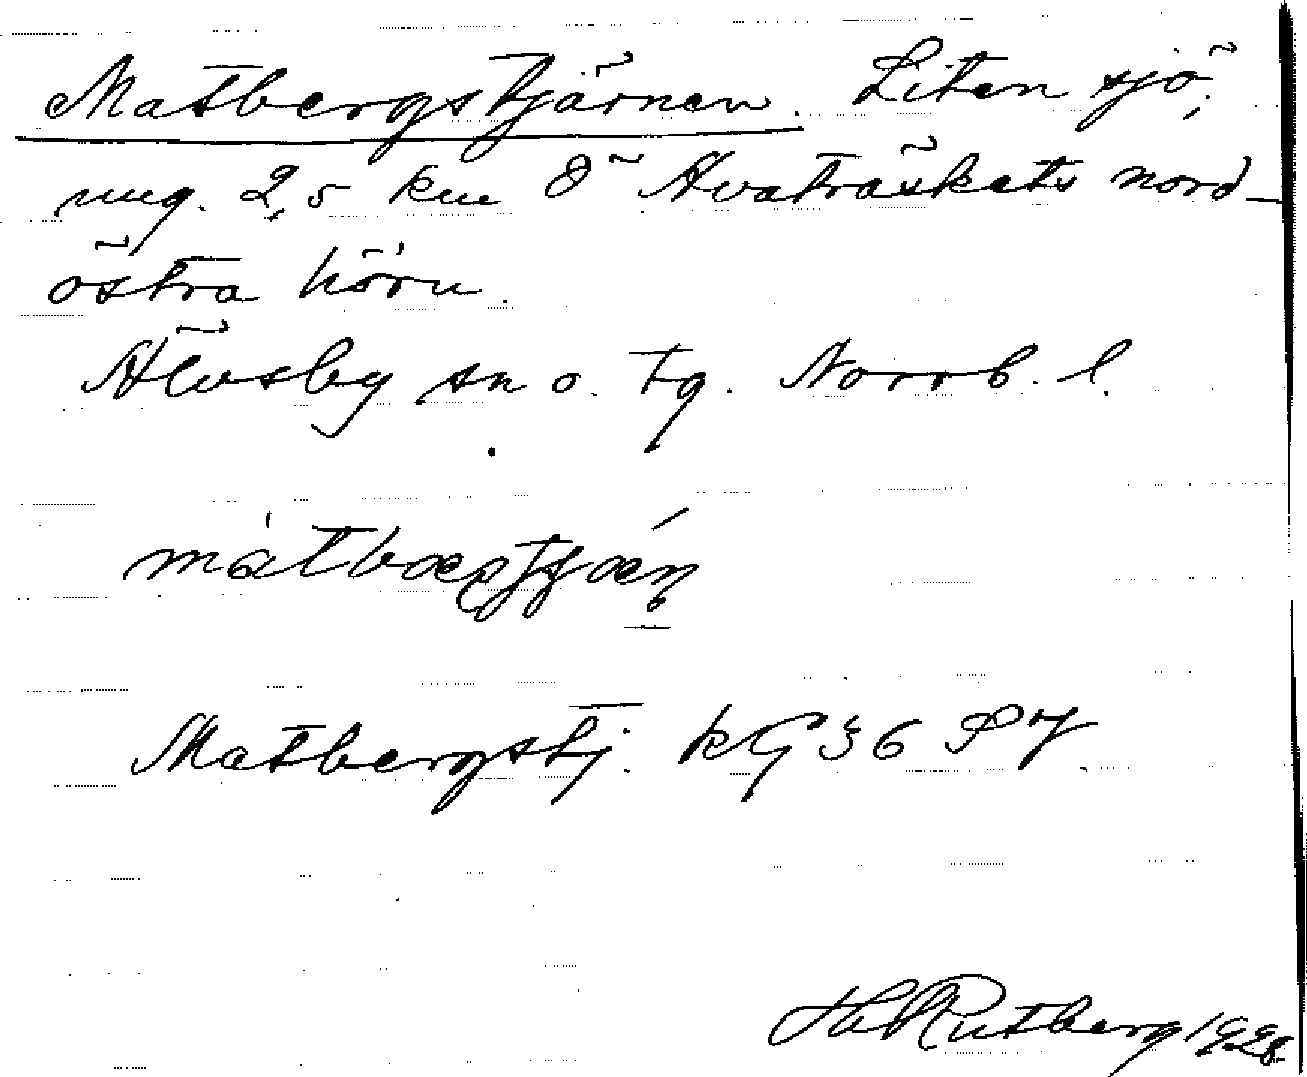 Matbergstjärnen. Liten sjö,
ung. 2,5 km Ö Avaträskets nord-
östra hörn.
Älvsby sn o. tg. Norrb. l.
Matbergstj. kG 36 87
Hl Rutberg 1928